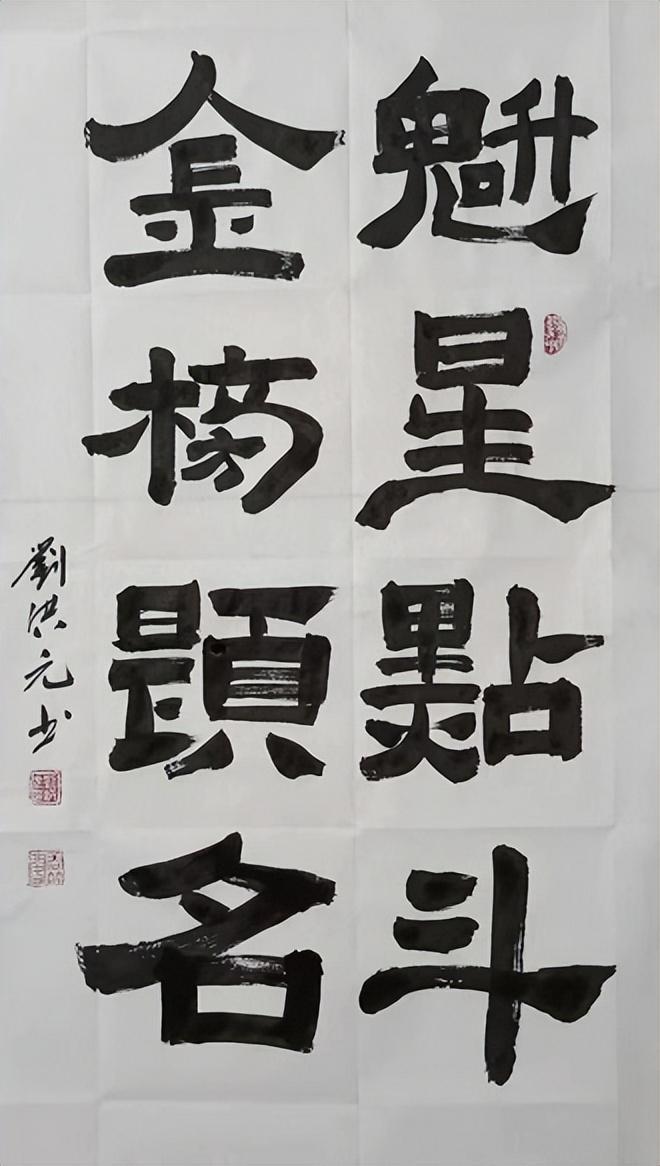 魁星點斗
金榜題名
劉洪元书